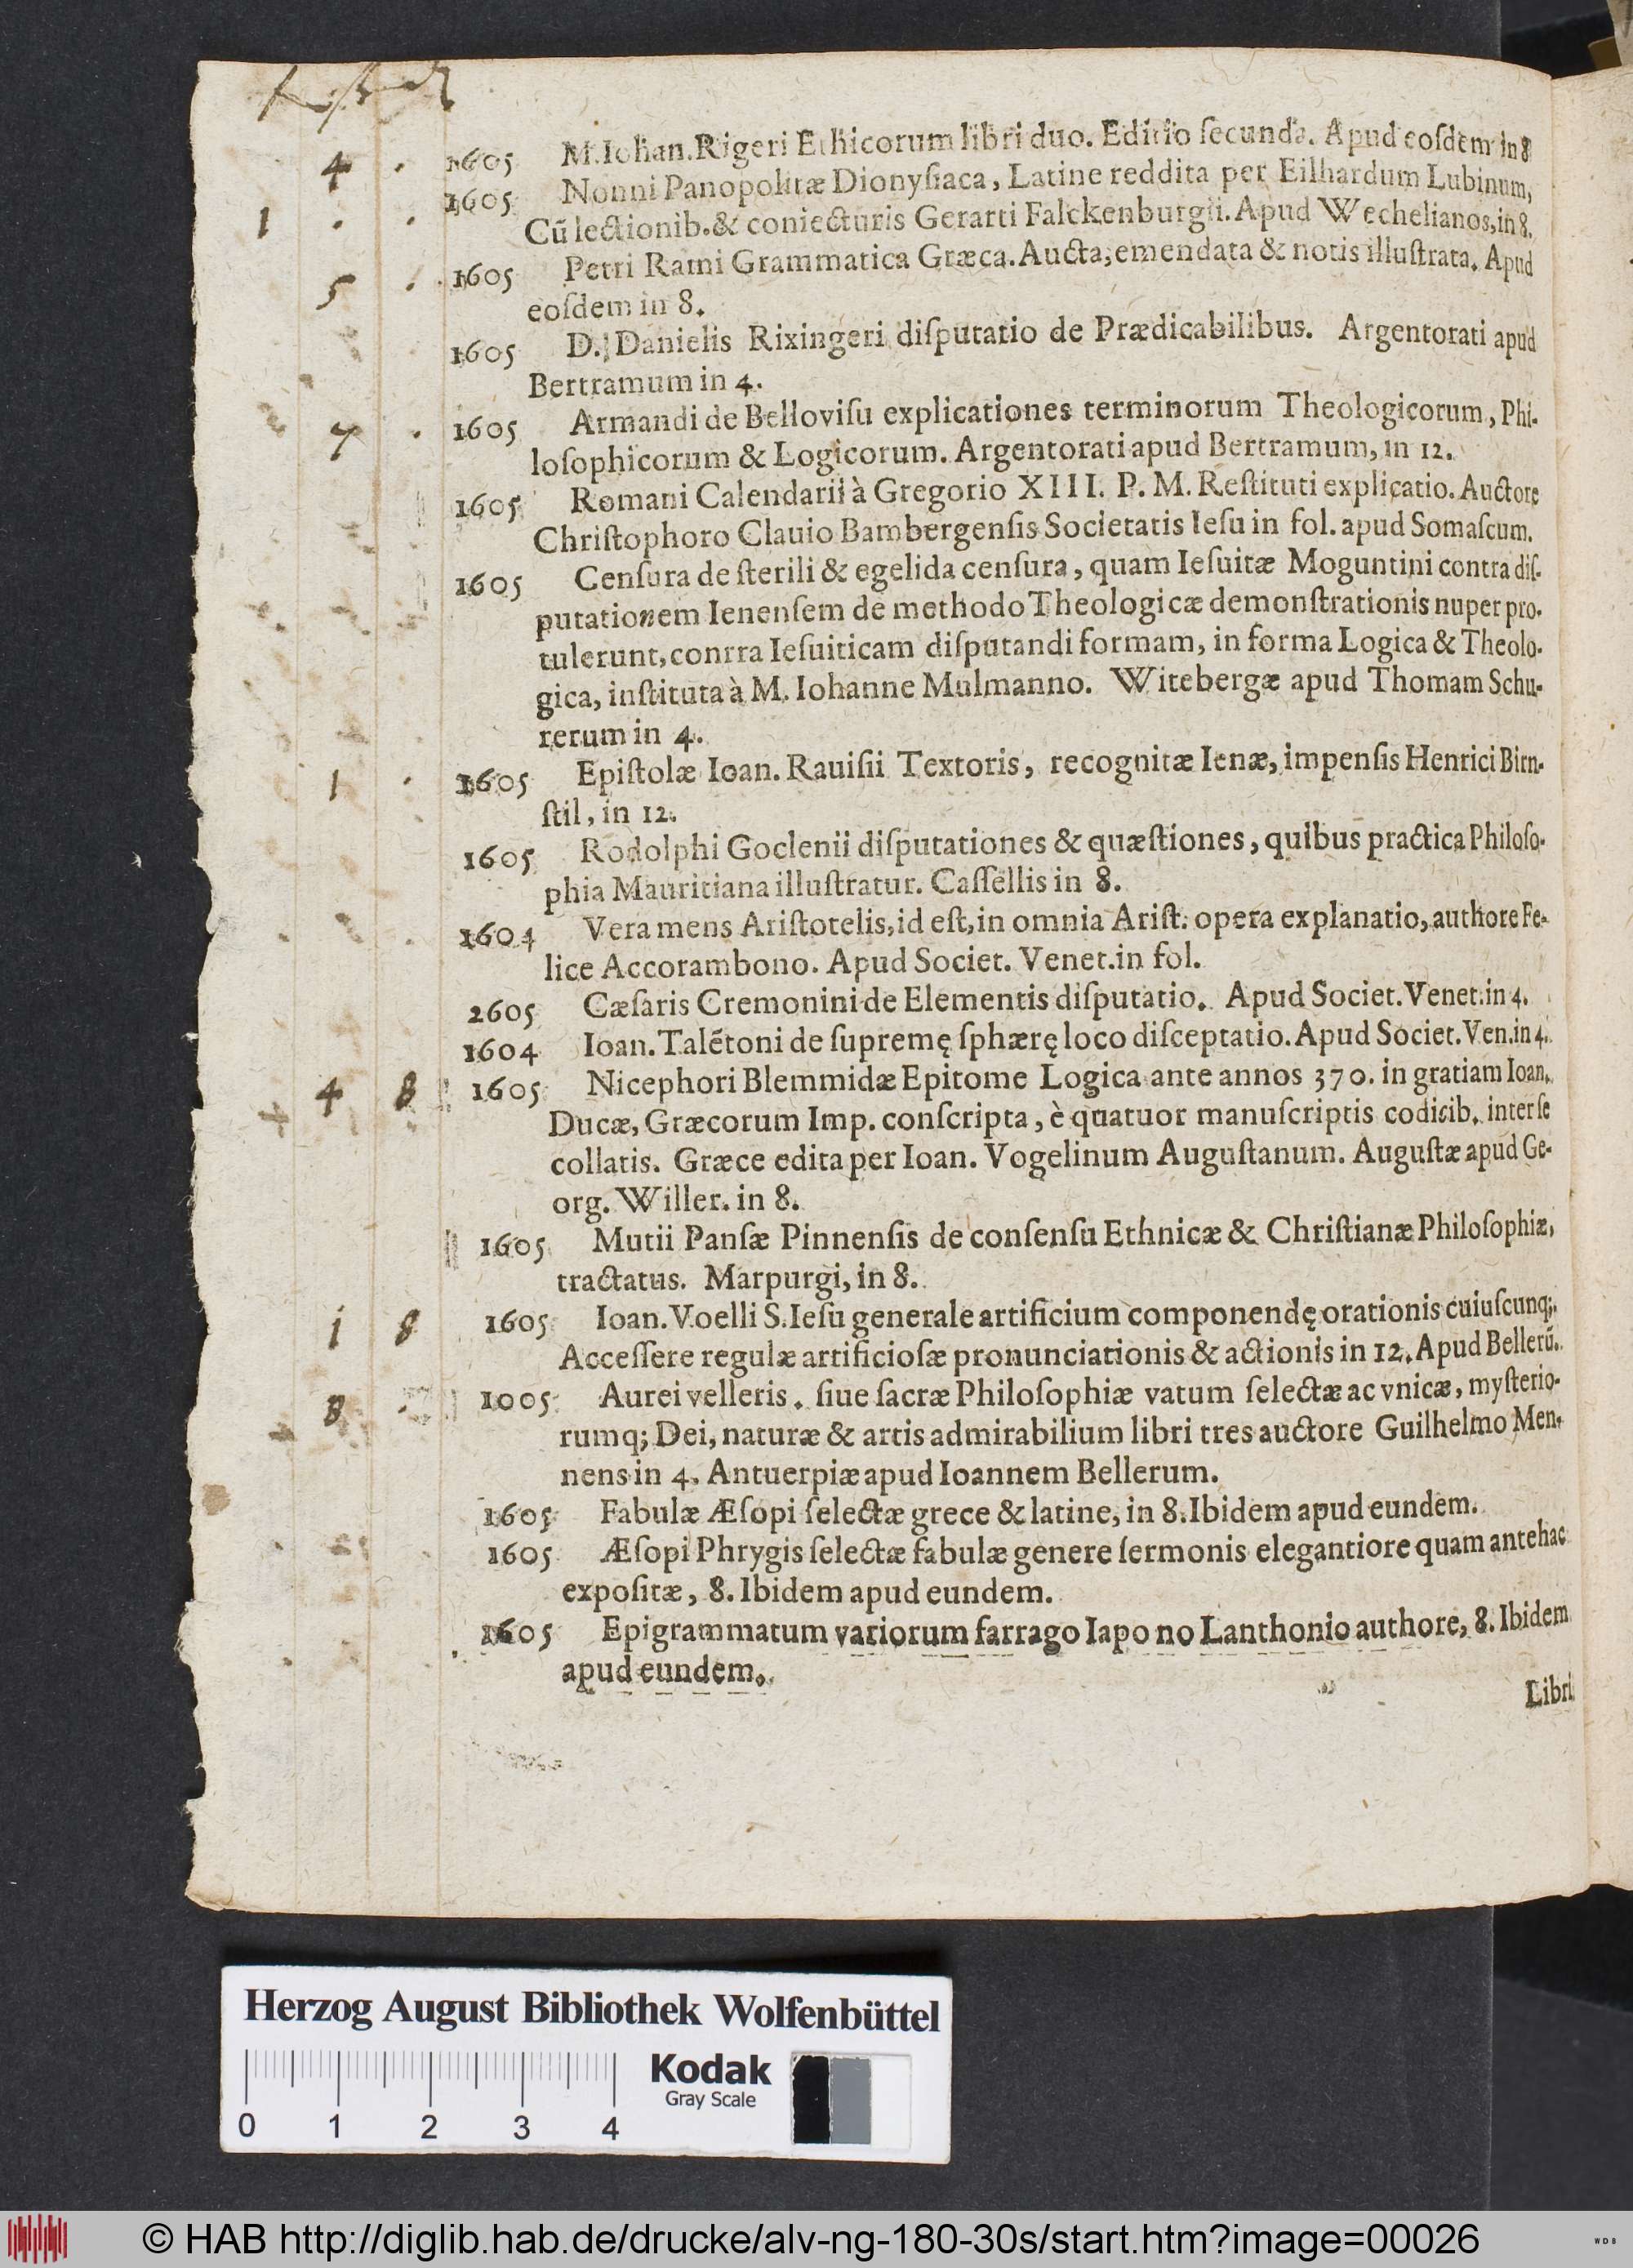 4 . 1605 M. Iohan. Rigeri Ethicorum libri duo. Editio ſecunda. Apud eoſdem in 8
1605 Nonni Panopolitæ Dionyſiaca, Latine reddita per Eilhardum Lubinum,
1 . . Cū lectionib. & coniecturis Gerarti Falckenburgii. Apud Wechelianos, in 8.
5 . 1605 Petri Rami Grammatica Græca. Aucta, emendata & notis illuſtrata. Apud
eoſdem in 8.
1605 D. Danielis Rixingeri diſputatio de Prædicabilibus. Argentorati apud
Bertramum in 4.
7 . 1605 Armandi de Belloviſu explicationes terminorum Theologicorum, Phi-
loſophicorum & Logicorum. Argentorati apud Bertramum, in 12.
1605 Romani Calendarii à Gregorio XIII. P. M. Reſtituti explicatio. Auctore
Chriſtophoro Clauio Bambergenſis Societatis Ieſu in fol. apud Somaſcum.
1605 Cenſura de ſterili & egelida cenſura, quam Ieſuitæ Moguntini contra diſ-
putationem Ienenſem de methodo Theologicæ demonſtrationis nuper pro-
tulerunt, conrra Ieſuiticam diſputandi formam, in forma Logica & Theolo-
gica, inſtituta à M. Iohanne Mulmanno. Witebergæ apud Thomam Schu-
rerum in 4.
1 . 1605 Epiſtolæ Ioan. Rauiſii Textoris, recognitæ Ienæ, impenſis Henrici Birn-
ſtil, in 12.
1605 Rodolphi Goclenii diſputationes & quæſtiones, quibus practica Philoſo-
phia Mauritiana illuſtratur. Caſſellis in 8.
1604 Vera mens Ariſtotelis, id eſt, in omnia Ariſt. opera explanatio, authore Fe-
lice Accorambono. Apud Societ. Venet. in fol.
2605 Cæſaris Cremonini de Elementis diſputatio. Apud Societ. Venet. in 4.
1604 Ioan. Talētoni de ſupremę ſphærę loco diſceptatio. Apud Societ. Ven. in 4.
4 8 1605 Nicephori Blemmidæ Epitome Logica ante annos 370. in gratiam Ioan.
Ducæ, Græcorum Imp. conſcripta, è quatuor manuſcriptis codicib. inter ſe
collatis. Græce edita per Ioan. Vogelinum Auguſtanum. Auguſtæ apud Ge-
org. Willer. in 8.
1605 Mutii Panſæ Pinnenſis de conſenſu Ethnicæ & Chriſtianæ Philoſophiæ,
tractatus. Marpurgi, in 8.
1 8 1605 Ioan. Voelli S. Ieſu generale artificium componendę orationis cuiuſcunq;.
Acceſſere regulæ artificioſæ pronunciationis & actionis in 12. Apud Bellerū.
8 . 1005 Aurei velleris. ſiue ſacræ Philoſophiæ vatum ſelectæ ac vnicæ, myſterio-
rumq; Dei, naturæ & artis admirabilium libri tres auctore Guilhelmo Men-
nens in 4. Antuerpiæ apud Ioannem Bellerum.
1605 Fabulæ Æſopi ſelectæ grece & latine, in 8. Ibidem apud eundem.
1605 Æſopi Phrygis ſelectæ fabulæ genere ſermonis elegantiore quam antehac
expoſitæ, 8. Ibidem apud eundem.
1605 Epigrammatum variorum farrago Iapo no Lanthonio authore, 8. Ibidem
apud eundem.
Libri
Herzog August Bibliothek Wolfenbüttel
Kodak
Gray Scale
0 1 2 3 4
© HAB http://diglib.hab.de/drucke/alv-ng-180-30s/start.htm?image=00026
WDB